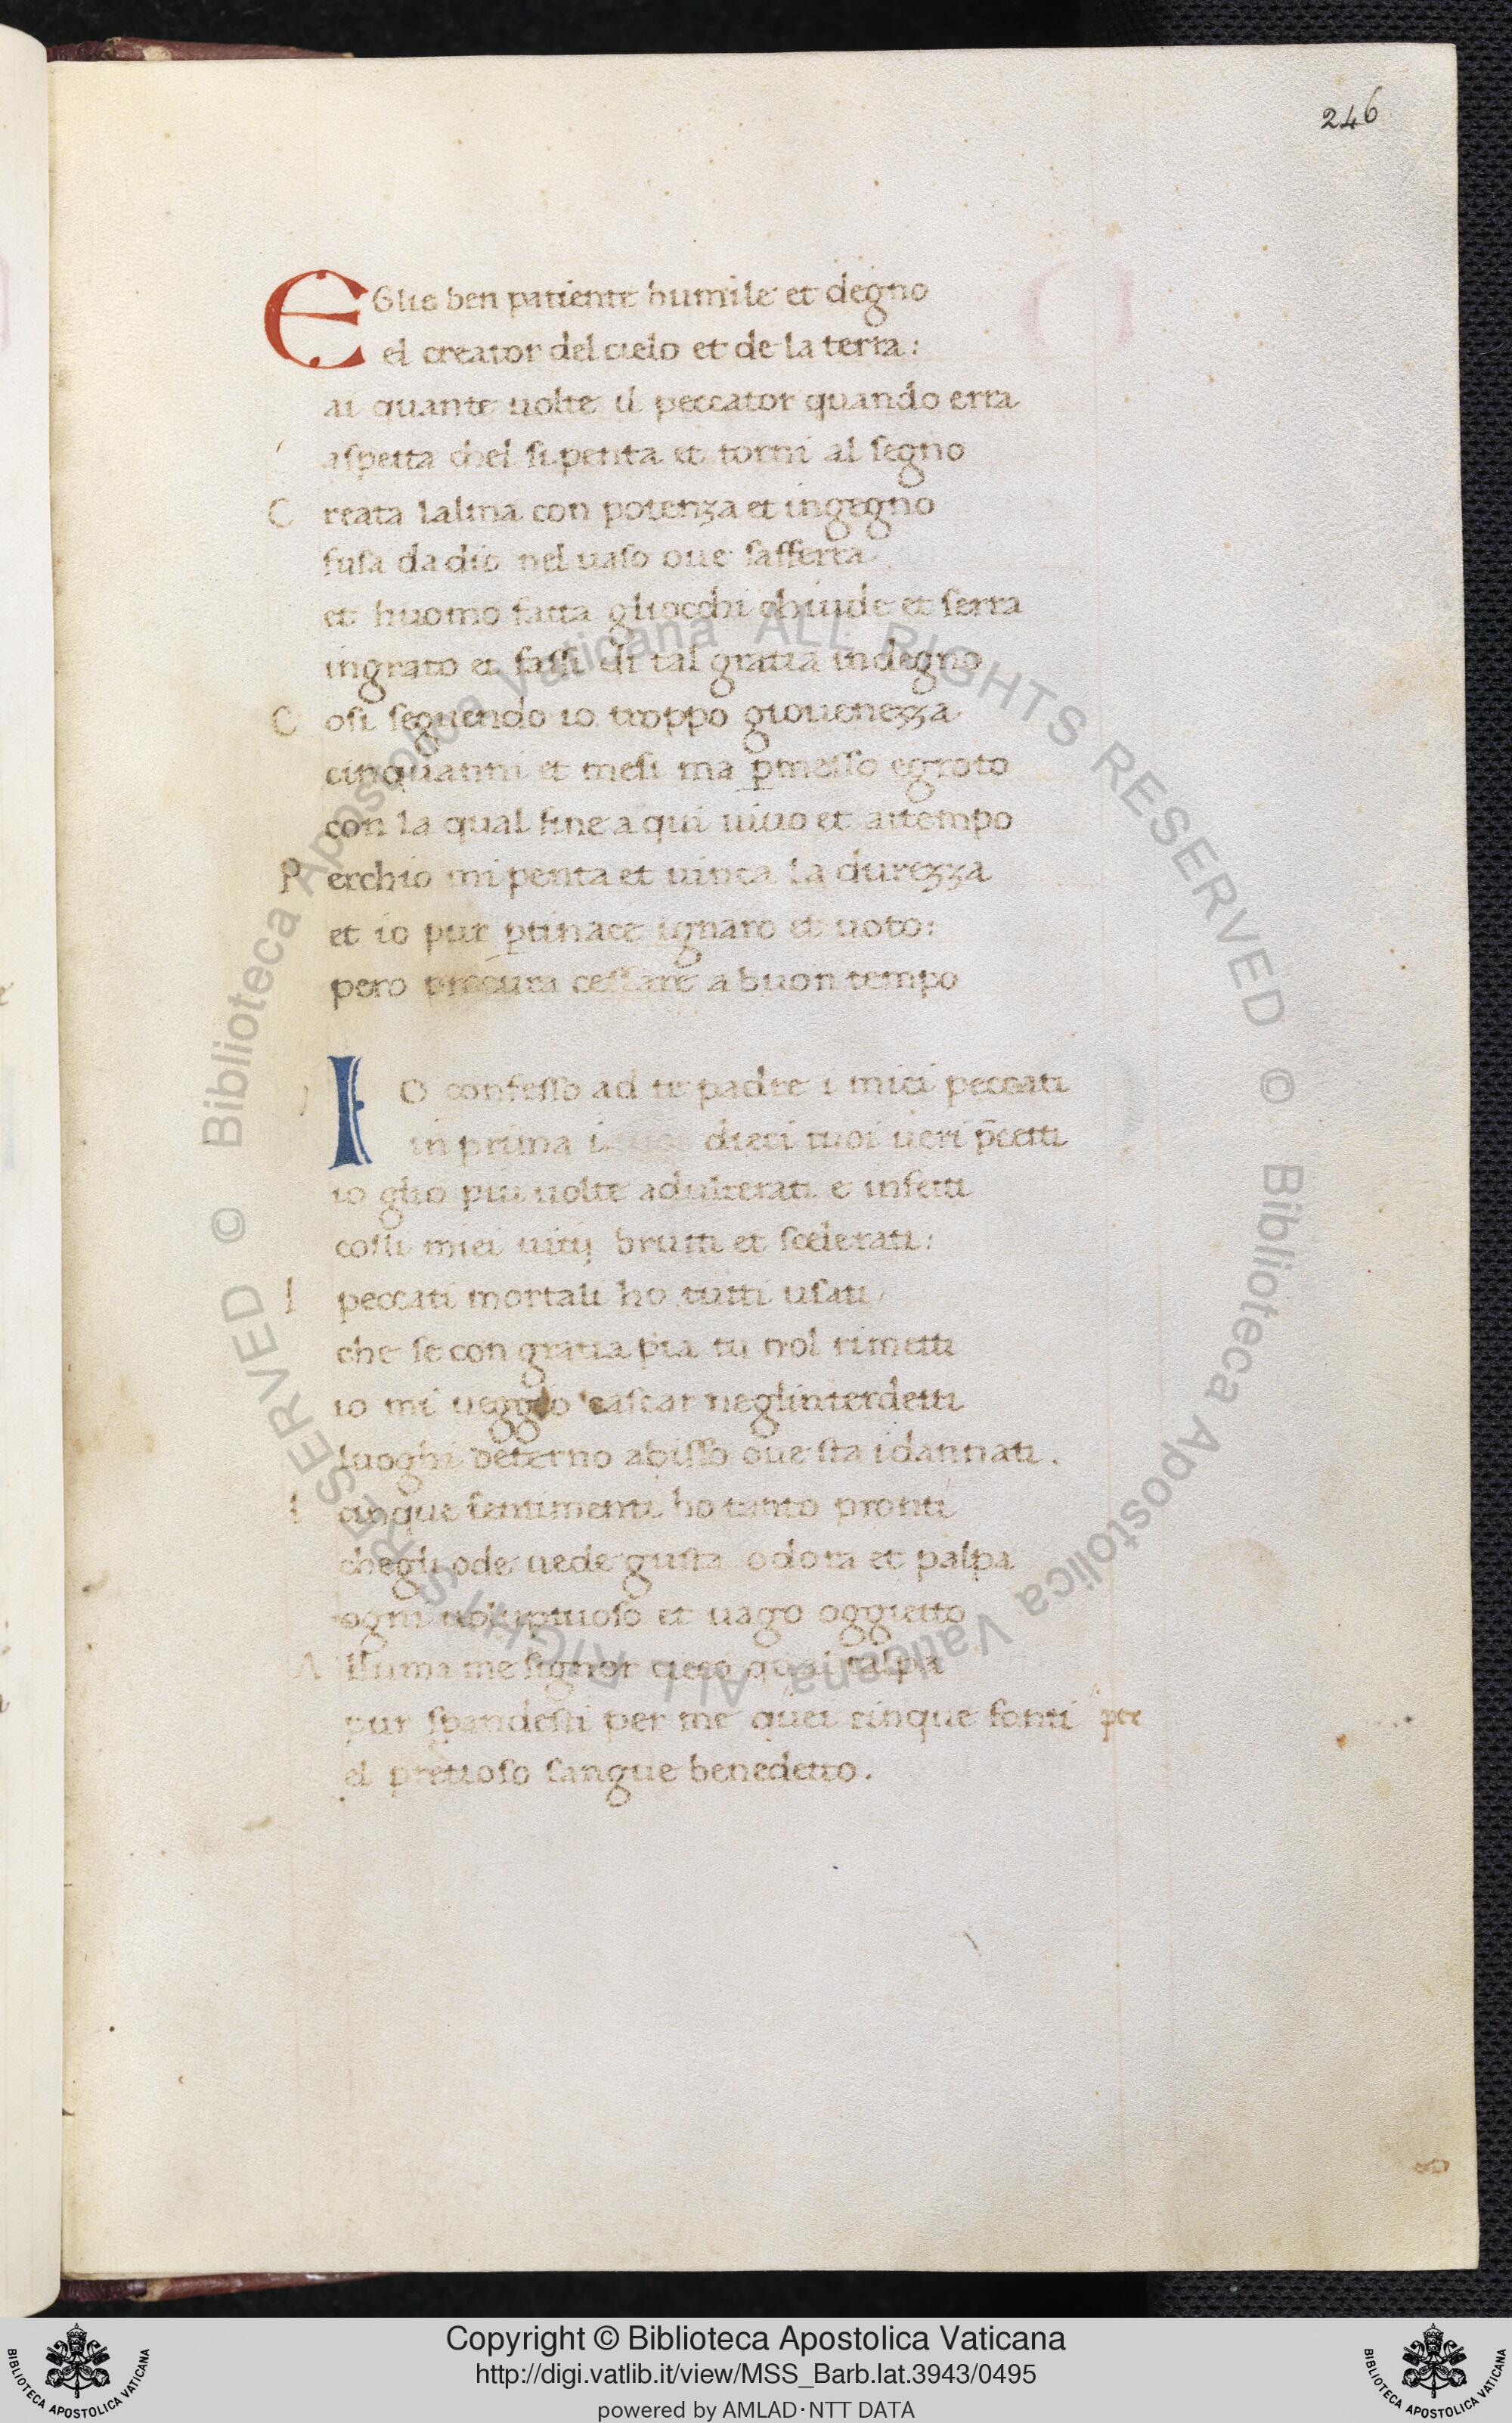 246
EGlie ben patiente humile et degno
el creator del cielo et de la terra:
ai quante uolte il peccator quando erra
aspetta chel si penta et torni al segno
C reata lalma con potenza et ingegno
fusa da dio nel uaso oue safferra
et huomo fatta gliocchi chiude et serra
ingrato et fassi di tal gratia indegno
C osi seguendo io troppo giouenezza
cinquanni et mesi ma pmesso egroto
con la qual fine a qui uiuo et attempo
P erchio mi penta et uinca la durezza
et io pur ptinace ignaro et uoto:
pero procura cessare a buon tempo
IO confesso ad te padre i miei peccati
in prima i dieci tuoi ueri p̄cetti
io glio piu uolte adulterati e infetti
colli miei uitij brutti et scelerati:
I peccati mortali ho tutti usati
che se con gratia pia tu nol rimetti
io mi ueggio cascar neglinterdetti
luoghi deterno abisso oue sta idannati.
I cinque sentimenti ho tanto pronti
chegli ode uede gusta odora et palpa
ogni uoluptuoso et uago oggietto
A lluma me signor cieco qual talpa
pur spandesti per me quei cinque fonti
el pretioso sangue benedetto.
Biblioteca Apostolica Vaticana ALL RIGHTS RESERVED © Biblioteca Apostolica Vaticana ALL RIGHTS RESERVED ©
Copyright © Biblioteca Apostolica Vaticana
http://digi.vatlib.it/view/MSS_Barb.lat.3943/0495
powered by AMLAD·NTT DATA
BIBLIOTECA APOSTOLICA VATICANA
BIBLIOTECA APOSTOLICA VATICANA